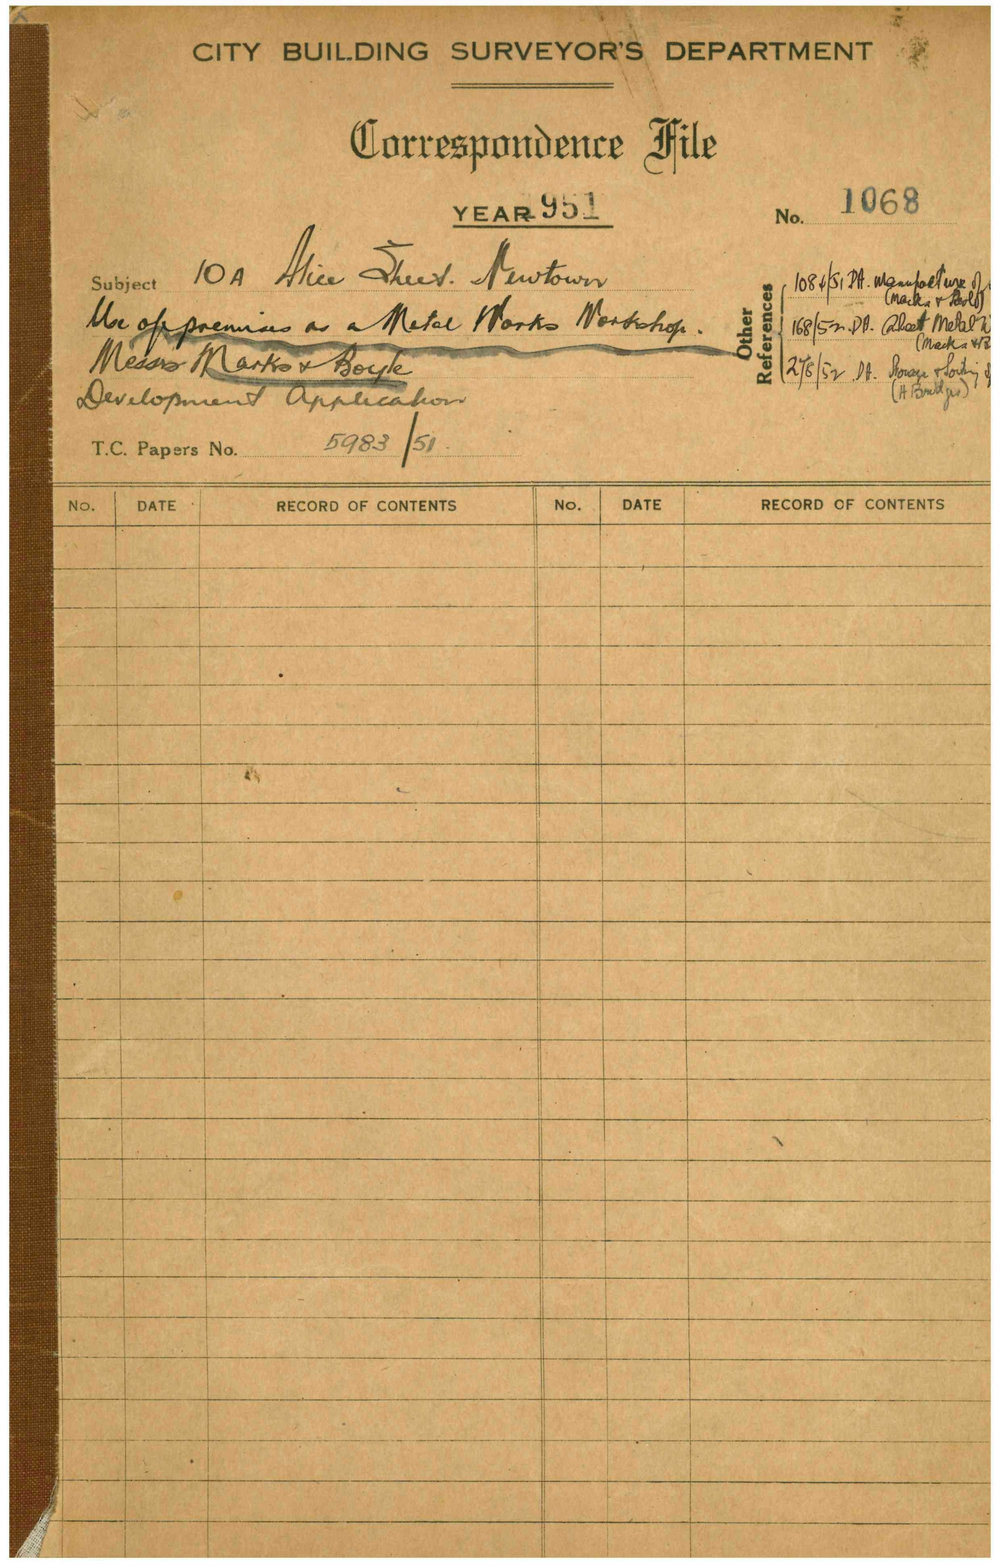 CITY BUILDING SURVEYOR'S DEPARTMENT
Correspondence File
YEAR 1951
No. 1068
Subject 10A Alice Street. Newtown
Use of premises as a Metal Works Workshop.
Messrs Marks & Boyle
Development Application
T.C. Papers No. 5983/51.
Other References
1084/51 DA. Manufacture of
168/52 DA. Sheet Metal W
(Marks & B
278/52 DA. Storage & Sorting of
No. DATE RECORD OF CONTENTS No. DATE RECORD OF CONTENTS